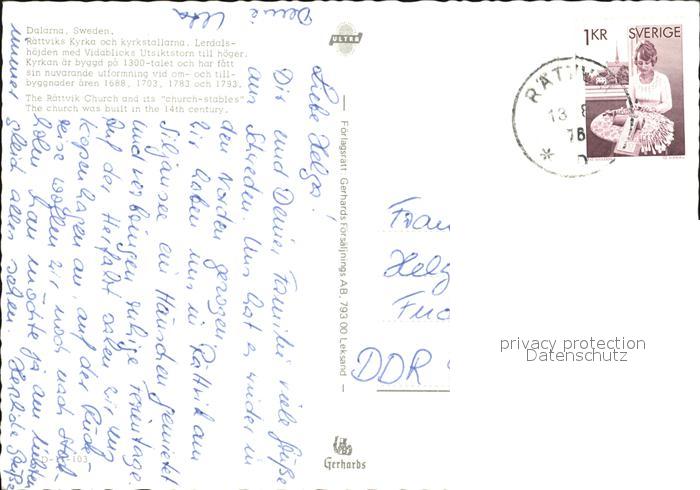 Dalarna, Sweden.
Rättviks Kyrka och kyrkstallarna. Lerdals-
höjden med Vidablicks Utsiktstorn till höger.
Kyrkan är byggd på 1300-talet och har fått
sin nuvarande utformning vid om- och till-
byggnader åren 1688, 1703, 1783 och 1793.
The Rättvik Church and its "church-stables".
The church was built in the 14th century.
ULTRA
Förlagsrätt: Gerhards Försäljnings AB, 793 00 Leksand
Gerhards
1KR SVERIGE
RÄTTVIK
13 8
76
Liebe Helga!
Dir und Deiner Familie viele Grüße
aus Schweden. Uns hat es wieder in
den Norden gezogen.
Wir haben uns in Rättvik am
Siljansee ein Häuschen gemietet
und verbringen ruhige Ferientage.
Auf der Herfahrt sahen wir uns
Kopenhagen an, auf der Rück-
reise wollen wir noch nach Stock-
holm. Man möchte ja am liebsten
immer gleich alles sehen. Herzliche Grüße
Deine
Frau
Helg
DDR
privacy protection
Datenschutz